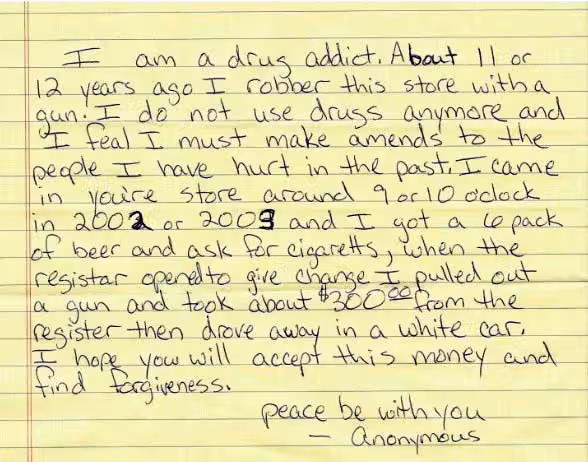 I am a drug addict. About 11 or
12 years ago I robber this store with a
gun. I do not use drugs anymore and
I feal I must make amends to the
people I have hurt in the past. I came
in you're store around 9 or 10 o'clock
in 2002 or 2003 and I got a 6 pack
of beer and ask for cigaretts, when the
registar opened to give change I pulled out
a gun and took about $300.00 from the
register then drove away in a white car.
I hope you will accept this money and
find forgiveness.
peace be with you
— anonymous